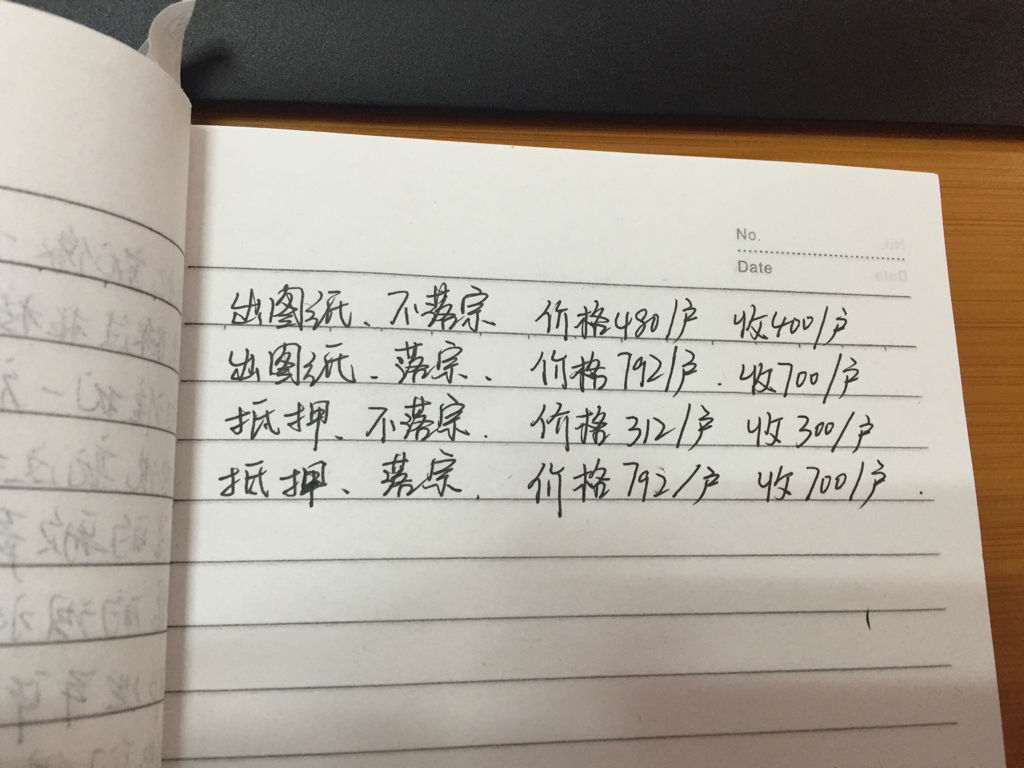 No.
Date
出图纸、不落宗 价格480/户 收400/户
出图纸、落宗、 价格792/户、收700/户
抵押、不落宗、 价格312/户 收300/户
抵押、落宗、 价格792/户 收700/户.